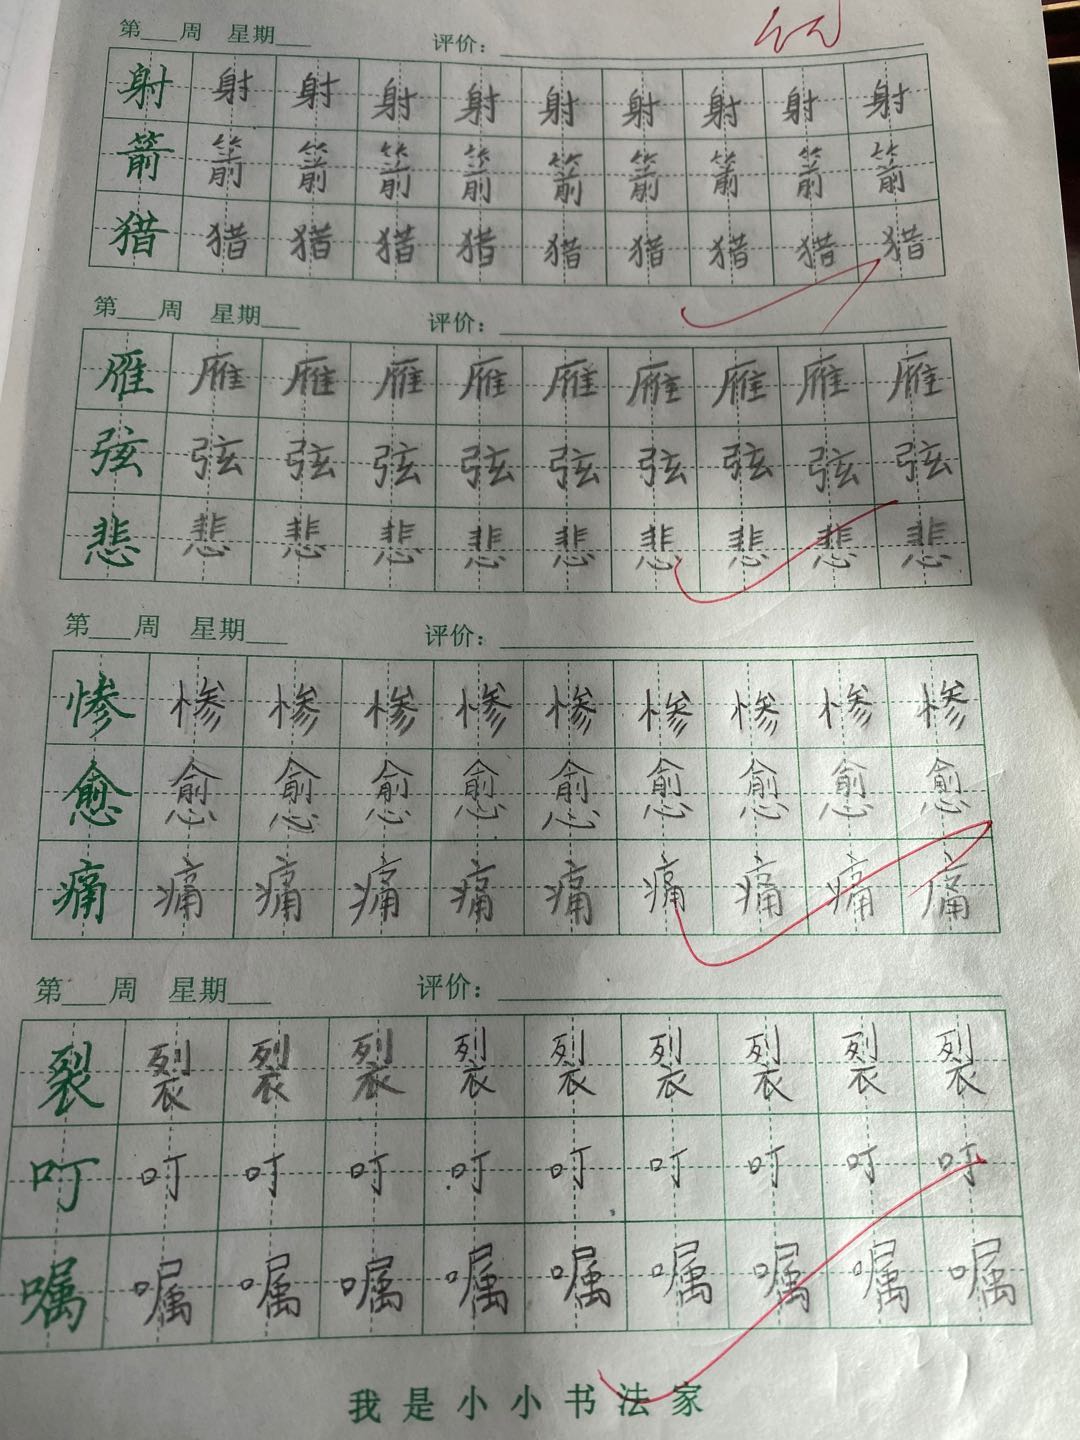 第___周 星期___ 评价：
射 射 射 射 射 射 射 射 射 射
箭 箭 箭 箭 箭 箭 箭 箭 箭 箭
猎 猎 猎 猎 猎 猎 猎 猎 猎 猎
第___周 星期___ 评价：
雁 雁 雁 雁 雁 雁 雁 雁 雁 雁
弦 弦 弦 弦 弦 弦 弦 弦 弦 弦
悲 悲 悲 悲 悲 悲 悲 悲 悲 悲
第___周 星期___ 评价：
惨 惨 惨 惨 惨 惨 惨 惨 惨 惨
愈 愈 愈 愈 愈 愈 愈 愈 愈 愈
痛 痛 痛 痛 痛 痛 痛 痛 痛 痛
第___周 星期___ 评价：
裂 裂 裂 裂 裂 裂 裂 裂 裂 裂
叮 叮 叮 叮 叮 叮 叮 叮 叮 叮
嘱 嘱 嘱 嘱 嘱 嘱 嘱 嘱 嘱 嘱
我是小小书法家